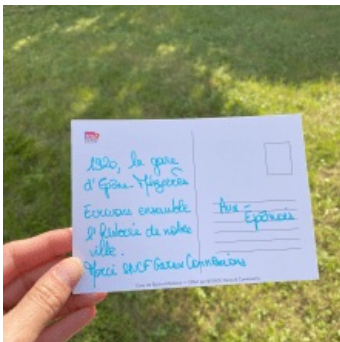 SNCF
1920, la gare
d'Epône-Mézières
Ecrivons ensemble
l'histoire de notre
ville.
Merci SNCF Gares & Connexions
Aux
Epônois